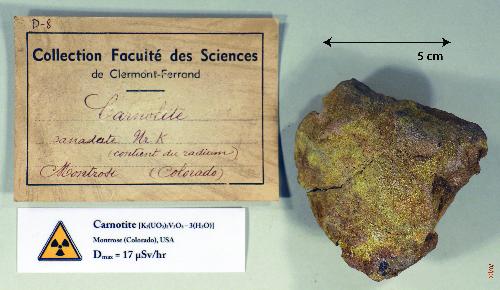 D-8
Collection Facuité des Sciences
de Clermont-Ferrand
Carnotite
vanadate Ur. K
(contient du radium)
Montrose (Colorado)
5 cm
Carnotite [K₂(UO₂)₂V₂O₈ · 3(H₂O)]
Montrose (Colorado), USA
Dmax = 17 µSv/hr